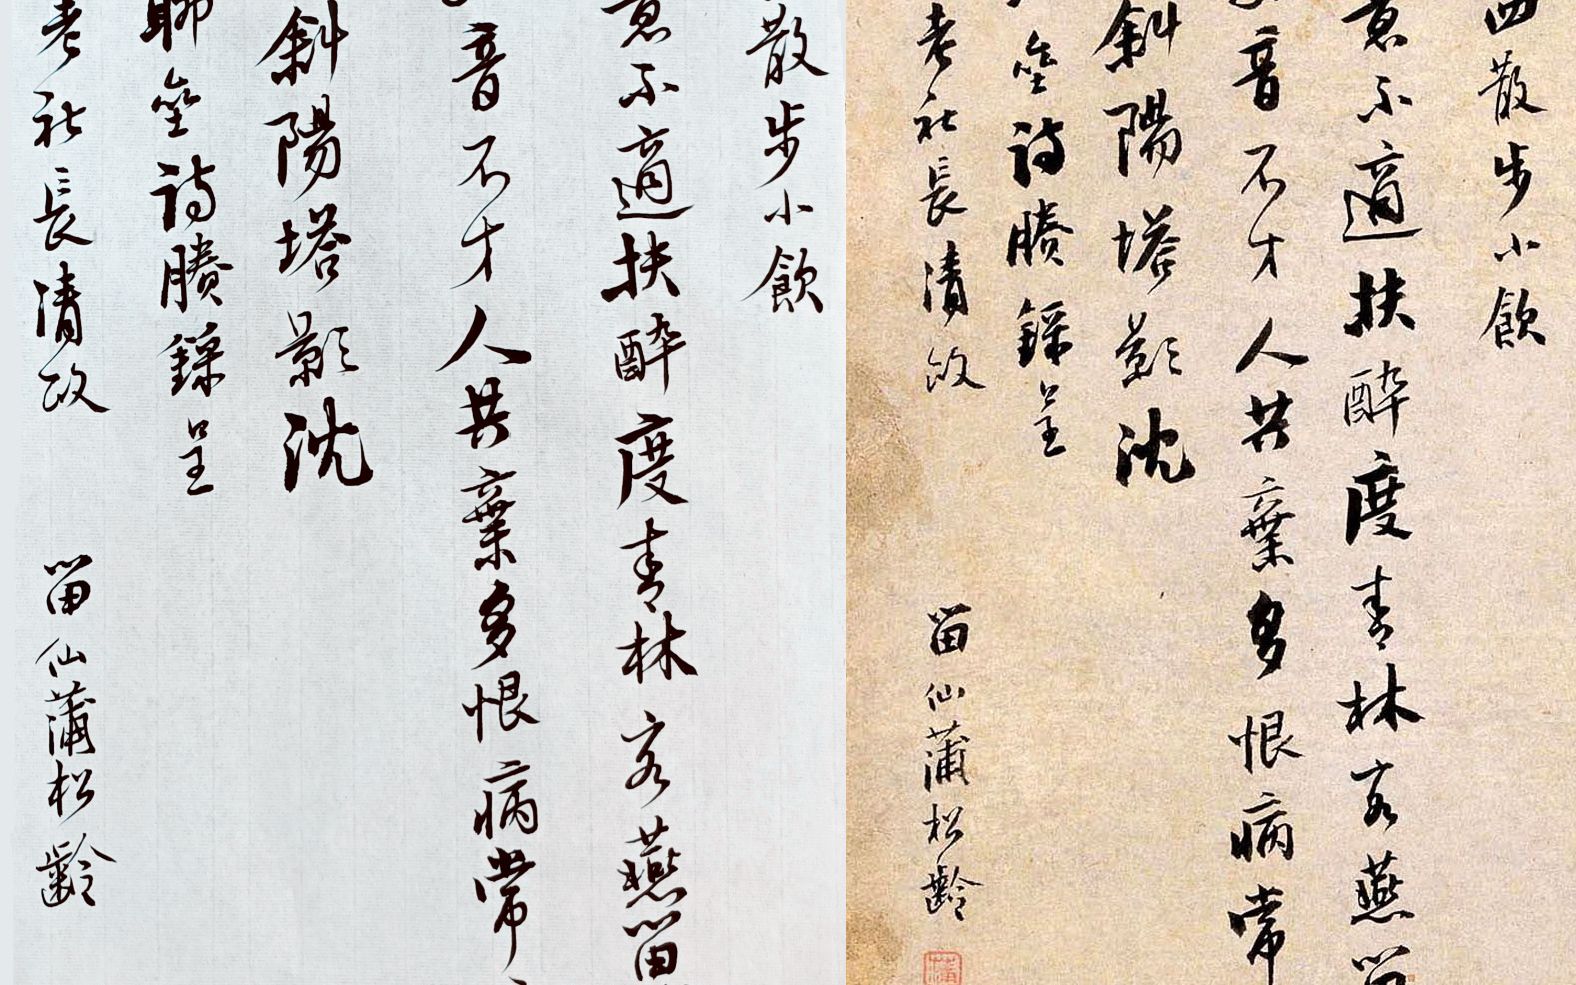 散步小飲
意不適扶醉度青林客燕留
音不才人共棄多恨病常
斜陽塔影沈
聊齋詩賸錄呈
老社長清政
留仙蒲松齡
四散步小飲
意不適扶醉度青林客燕留
音不才人共棄多恨病常
斜陽塔影沈
齋詩賸錄呈
老社長清政
留仙蒲松齡